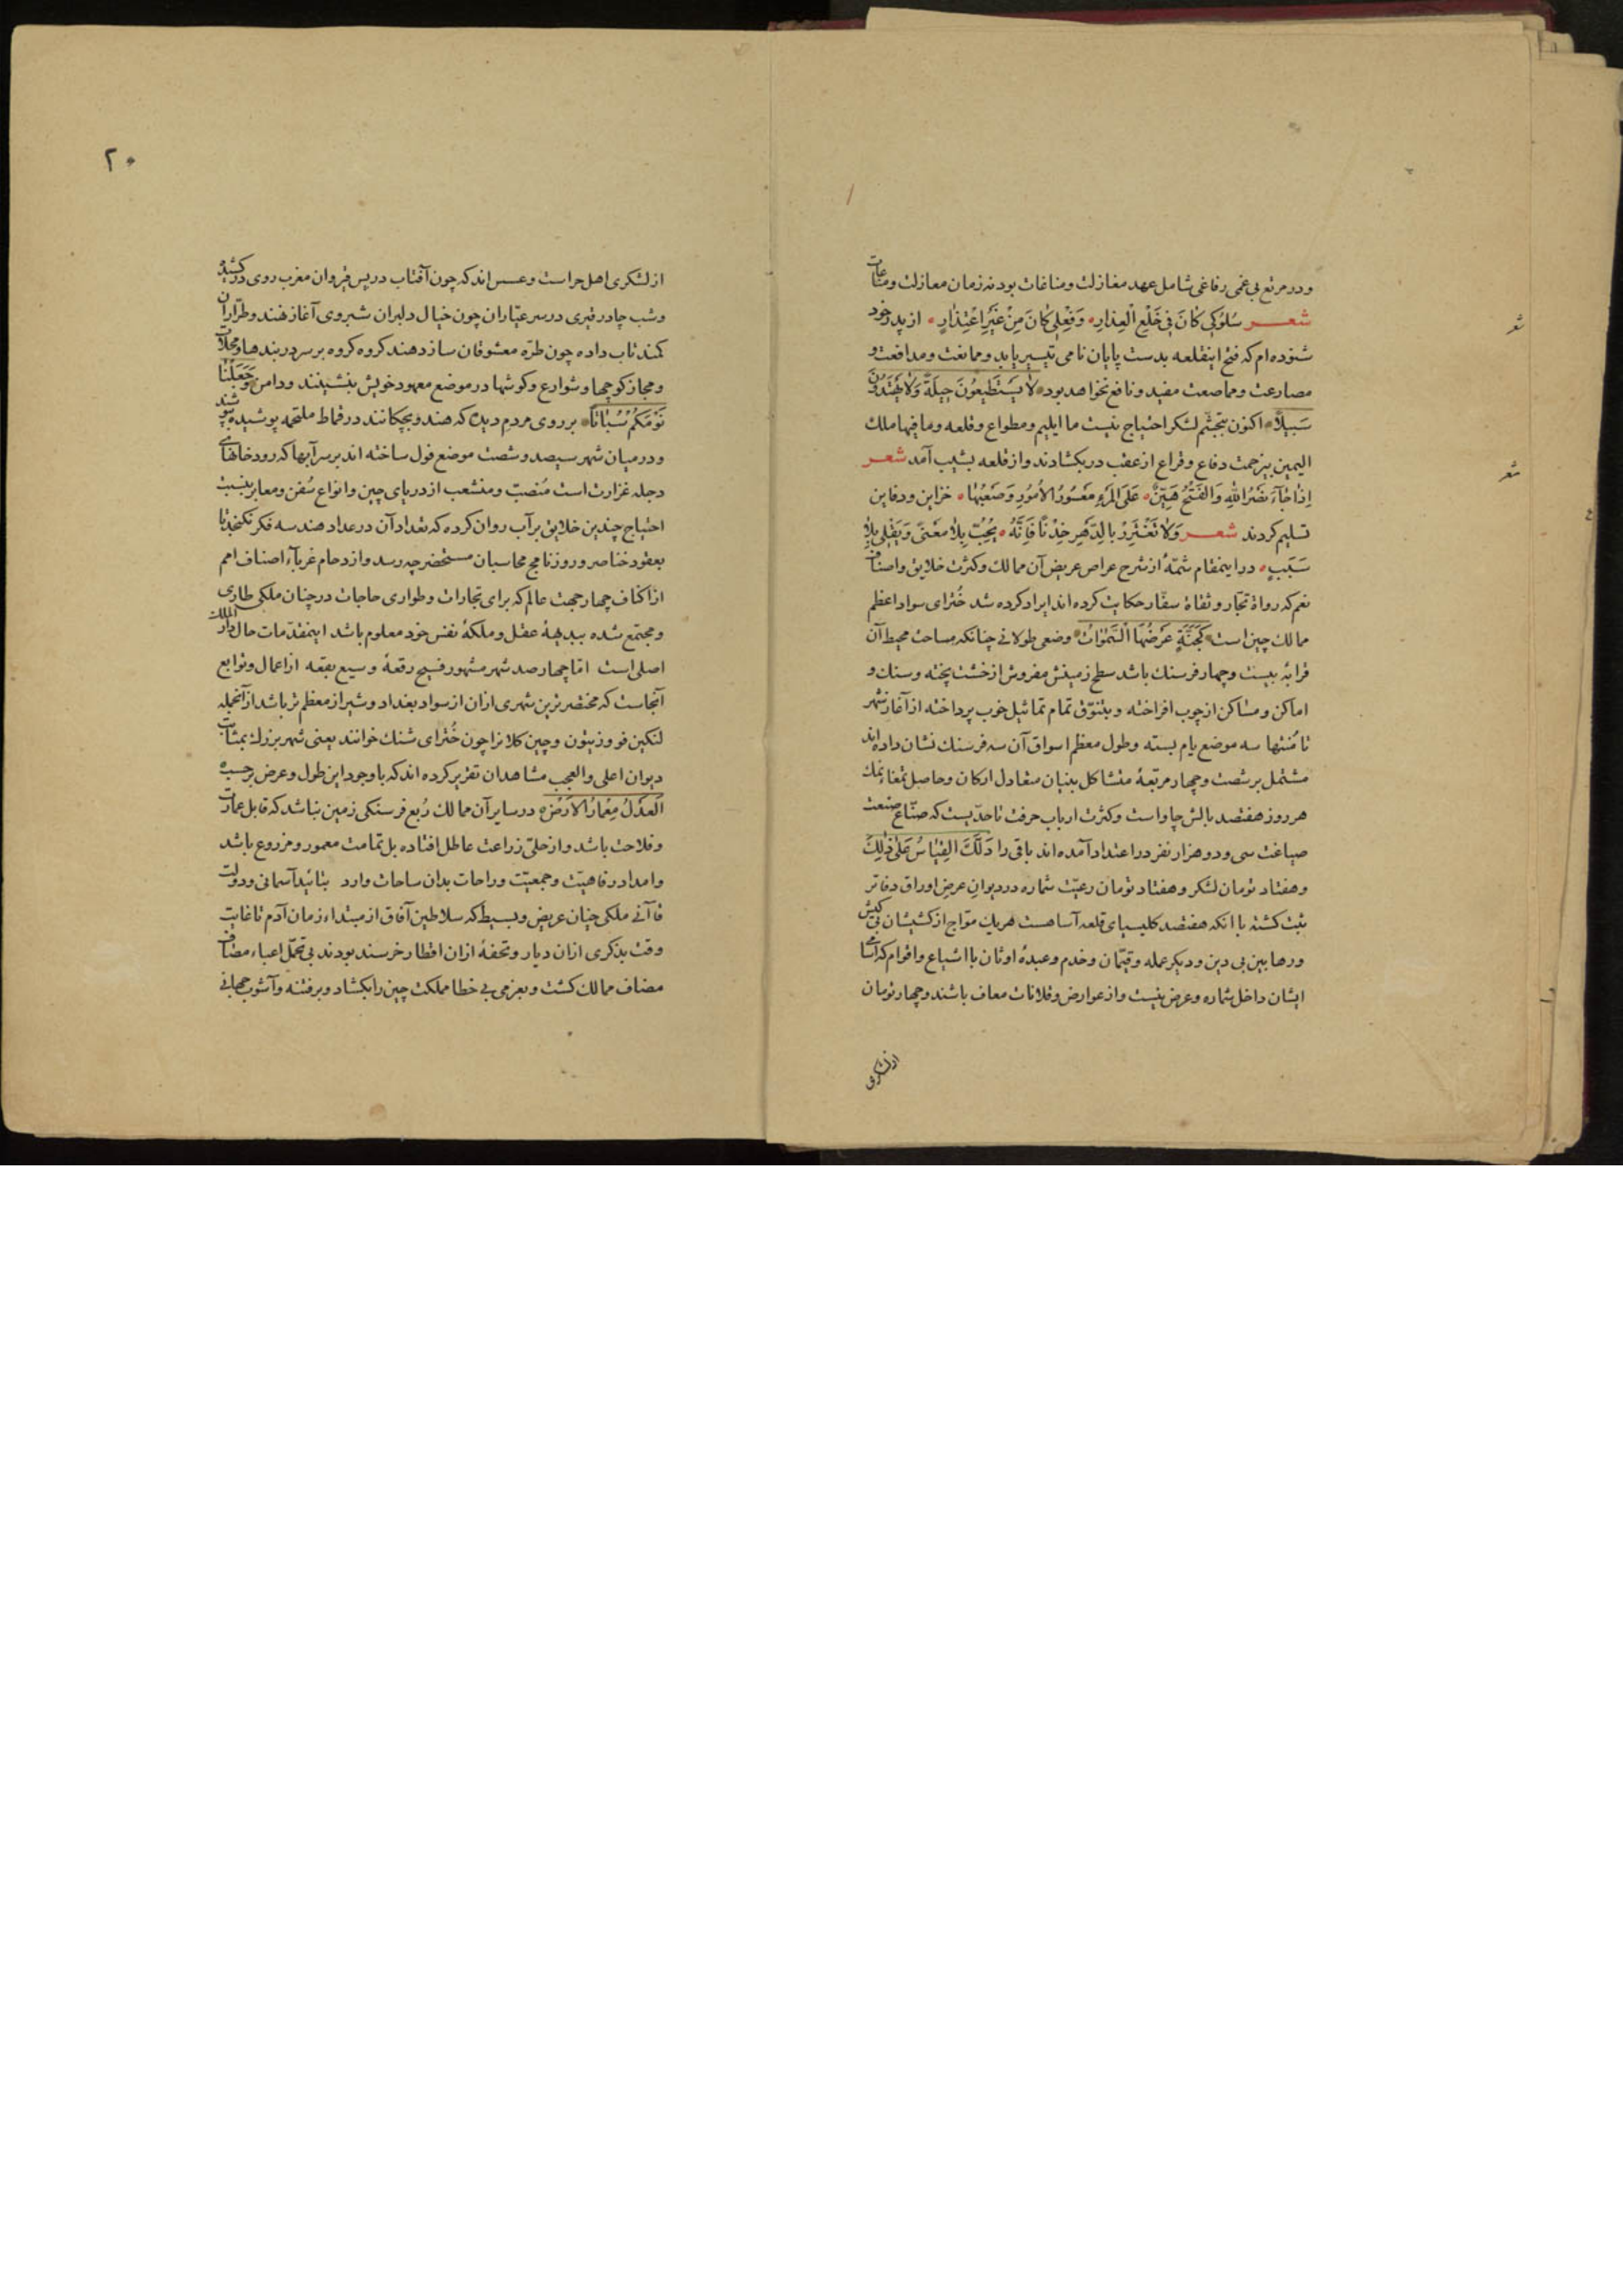 ودر مرتع بی غمی رفاغی شامل عهد مغازلت ومناغات بود نه زمان معازلت ومنتاعات
شعر سُلُوكِي كَانَ فِي خَلْعِ الْعِذَارِ وَفِعْلِي كَانَ مِنْ غَيْرِ اعْتِذَارٍ از پدر خود
شنوده ام که فتح اینقلعه بدست پایان نامی تیسیر یابد وممانعت ومدافعت و
مصارعت ومماصعت مفید ونافع نخواهد بود لَا يَسْتَطِيعُونَ حِيلَةً وَلَا يَهْتَدُونَ
سَبِيلًا اکنون بتجشّم لشکر احتیاج نیست ما ایلیم ومطواع وقلعه وما فیها ملک
الیمین بیزحمت دفاع وقراع از عقب در بکشادند واز قلعه بشیب آمد شعر
اِذَا جَآءَ نَصْرُ اللهِ وَالفَتْحُ هَيِّنٌ عَلَى المَرْءِ مَعْسُورُ الْاُمُورِ وَصَعْبُهَا خزاین ودفاین
تسلیم کردند شعر وَلَا تَغْتَرِرْ بِالدَّهْرِ خِدْنًا فَاِنَّهُ يُحِبّ بِلَا مَعْنًى وَيَقْلِي بِلَا
سَبَبٍ در اینمقام شمّهٔ از شرح عراص عریض آن ممالک وکثرت خلایق واصناف
نعم که رواة تجّار وثقاة سفّار حکایت کرده اند ایراد کرده شد خُنزای سواد اعظم
ممالک چین است كَجَنَّةٍ عَرْضُهَا السَّمٰوَاتُ وضعی طولانی چنانکه مساحت محیط آن
قرابهٔ بیست وچهار فرسنک باشد سطح زمینش مفروش از خشت پخته وسنک و
اماکن ومساکن از چوب افراخته وبتنوّق تمام تماثیل خوب پرداخته از آغاز شهر
تا مُنتها سه موضع یام بسته وطول معظم اسواق آن سه فرسنک نشان داده اند
مشتمل بر شصت وچهار مربّعهٔ متشاکل بنیان متعادل ارکان وحاصل تمغاء نمک
هر روز هفتصد بالش چاو است وکثرت ارباب حرفت تا حدّیست که صنّاع صنعت
صیاغت سی ودو هزار نفر در اعتداد آمده اند باقی را دَلَّكَ القِيَاسُ عَلَى ذٰلِكَ
وهفتاد تومان لشکر وهفتاد تومان رعیّت شماره در دیوان عرض اوراق دفاتر
ثبت کشته با انکه هفتصد کلیسیای قلعه آسا هست هریک موّاج از کشیشان بی کیش
ورهابین بی دین ودیکر عمله وقیّمان وخدم وعبدهٔ اوثان با اشیاع واقوام که اسامی
ایشان داخل شماره وعرض نیست واز عوارض وقلانات معاف باشند وچهار تومان
از لشکری
شعر
شعر
۲۰
از لشکری اهل حراست وعسس اند که چون آفتاب در پس قیروان مغرب روی در کشید
وشب چادر قیری در سر عیّاران چون خیال دلبران شبروی آغاز نهند وطرّاران
کمند تاب داده چون طرّه معشوقان ساز دهند کروه کروه بر سر دربندها ومحلّات
ومجاز کوچها وشوارع وکوشها در موضع معهود خویش بنشینند ودامن وَجَعَلْنَا
نَوْمَكُمْ سُبَاتًا بر روی مردم دیدٔ که هندو بچکانند در قماط ملتحمه پوشیده بپوشند
ودر میان شهر سیصد وشصت موضع قول ساخته اند بر سر آبها که رود خانهای
دجله غزارت است مُنصبّ ومنشعب از دریای چین وانواع سُفن ومعابر بنسبت
احتیاج چندین خلایق بر آب روان کرده که تعداد آن در عداد هندسه فکر نکنجد تا
بعقود خناصر وروزنامج محاسبان مستحضر چه رسد وازدحام غرباء اصناف امم
از اکناف چهار جهت عالم که برای تجارات وطواری حاجات در چنان ملکی طاری
ومجتمع شده ببدیهیهٔ عقل وملکهٔ نفس خود معلوم باشد اینمقدّمات حال دار الملک
اصلی است امّا چهار صد شهر مشهور فسیح رقعهٔ وسیع بقعه از اعمال وتوابع
آنجاست که مختصر ترین شهری ازان از سواد بغداد وشیراز معظم تر باشد از آنجمله
لنکین فو وزیتون وچین کلان را چون خُنزای شنک خوانند یعنی شهر بزرک بمثابت
دیوان اعلی والعجب مشاهدان تقریر کرده اند که با وجود این طول وعرض برحسب
العَدْلُ مِعْمَارُ الْاَرْضِ در سایر آن ممالک رُبع فرسنکی زمین نباشد که قابل عمارت
وفلاحت باشد واز حلی زراعت عاطل افتاده بل تمامت معمور ومزروع باشد
وامداد رفاهیّت وجمعیّت وراحات بدان ساحات وارد بتائید آسمانی ودولت
قاآنی ملکی چنان عریض وبسیط که سلاطین آفاق از مبتداء زمان آدم تا غایت
وقت بذکری ازان دیار وتحفهٔ ازان اقطار خرسند بودند بی تحمّل اعباء مصاف
مضاف ممالک کشت وبعزمی بی خطا مملکت چین را بکشاد وبر فتنه وآشوب جهانی